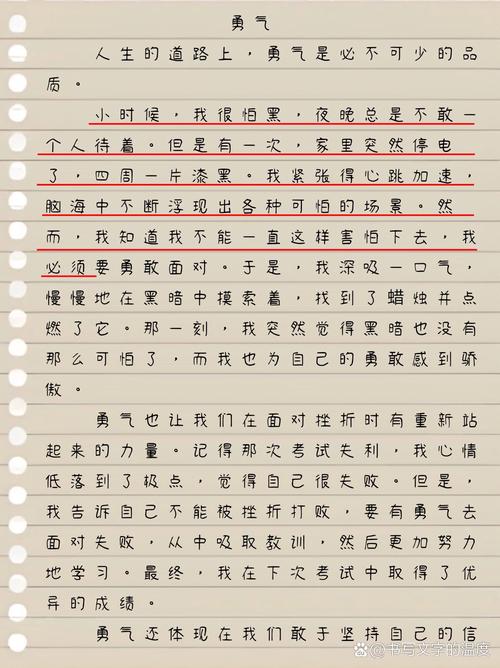 勇气
人生的道路上，勇气是必不可少的品
质。
小时候，我很怕黑，夜晚总是不敢一
个人待着。但是有一次，家里突然停电
了，四周一片漆黑。我紧张得心跳加速，
脑海中不断浮现出各种可怕的场景。然
而，我知道我不能一直这样害怕下去，我
必须要勇敢面对。于是，我深吸一口气，
慢慢地在黑暗中摸索着，找到了蜡烛并点
燃了它。那一刻，我突然觉得黑暗也没有
那么可怕了，而我也为自己的勇敢感到骄
傲。
勇气也让我们在面对挫折时有重新站
起来的力量。记得那次考试失利，我心情
低落到了极点，觉得自己很失败。但是，
我告诉自己不能被挫折打败，要有勇气去
面对失败，从中吸取教训，然后更加努力
地学习。最终，我在下次考试中取得了优
异的成绩。
勇气还体现在我们敢于坚持自己的信
书写文字的温度